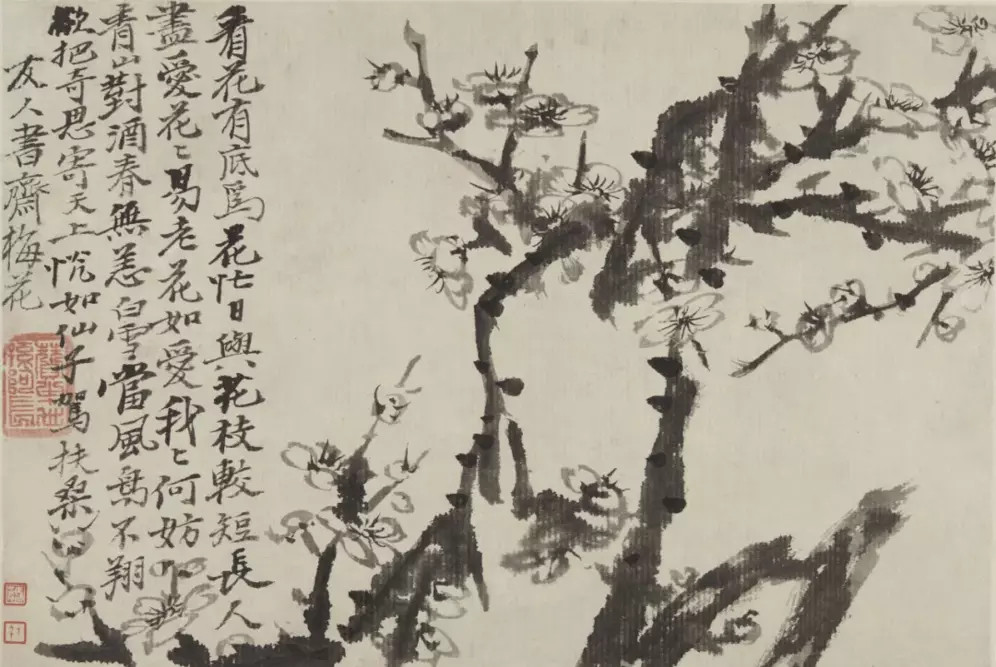 看花有底爲花忙日與花枝較短長人
盡愛花〻易老花如愛我〻何妨
青山對酒春無恙白雪當風鳥不翔
欲把奇思寄天上恍如仙子駕扶桑
友人書齋梅花